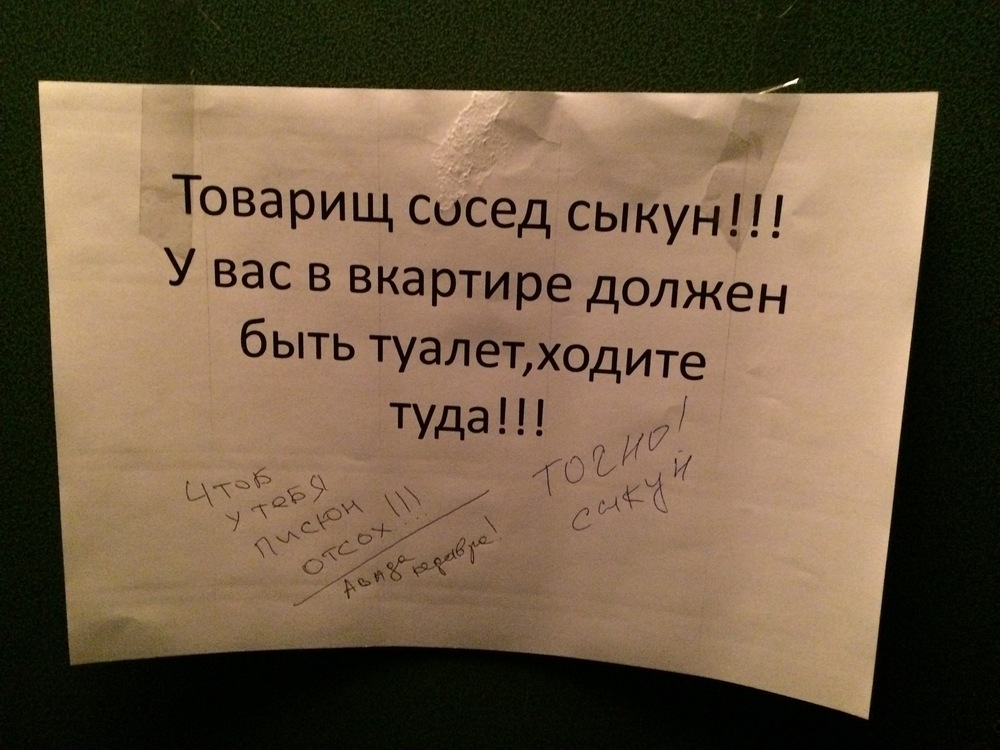 Товарищ сосед сыкун!!!
У вас в вкартире должен
быть туалет,ходите
туда!!!
Чтоб
у тебя
писюн
отсох!!!
Авада кедавра!
ТОЧНО!
сыкун